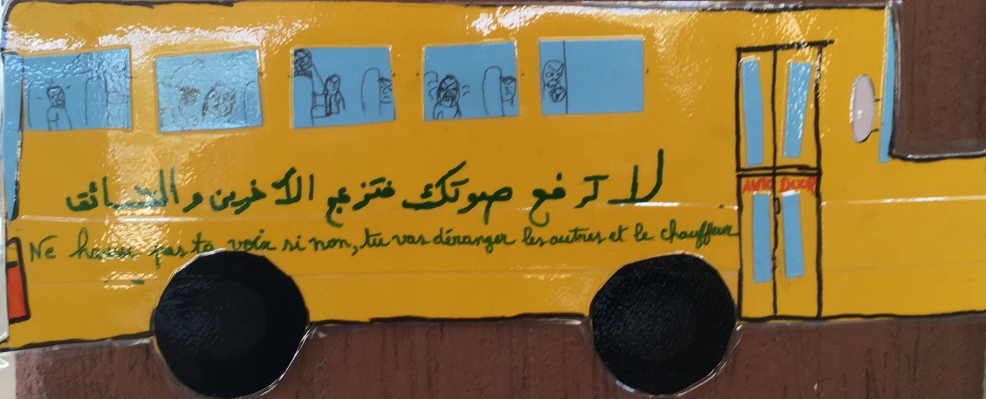 لا ترفع صوتك فتزعج الآخرين والسائق
Ne hausse pas ta voix si non, tu vas déranger les autres et le chauffeur
AUTO DOOR